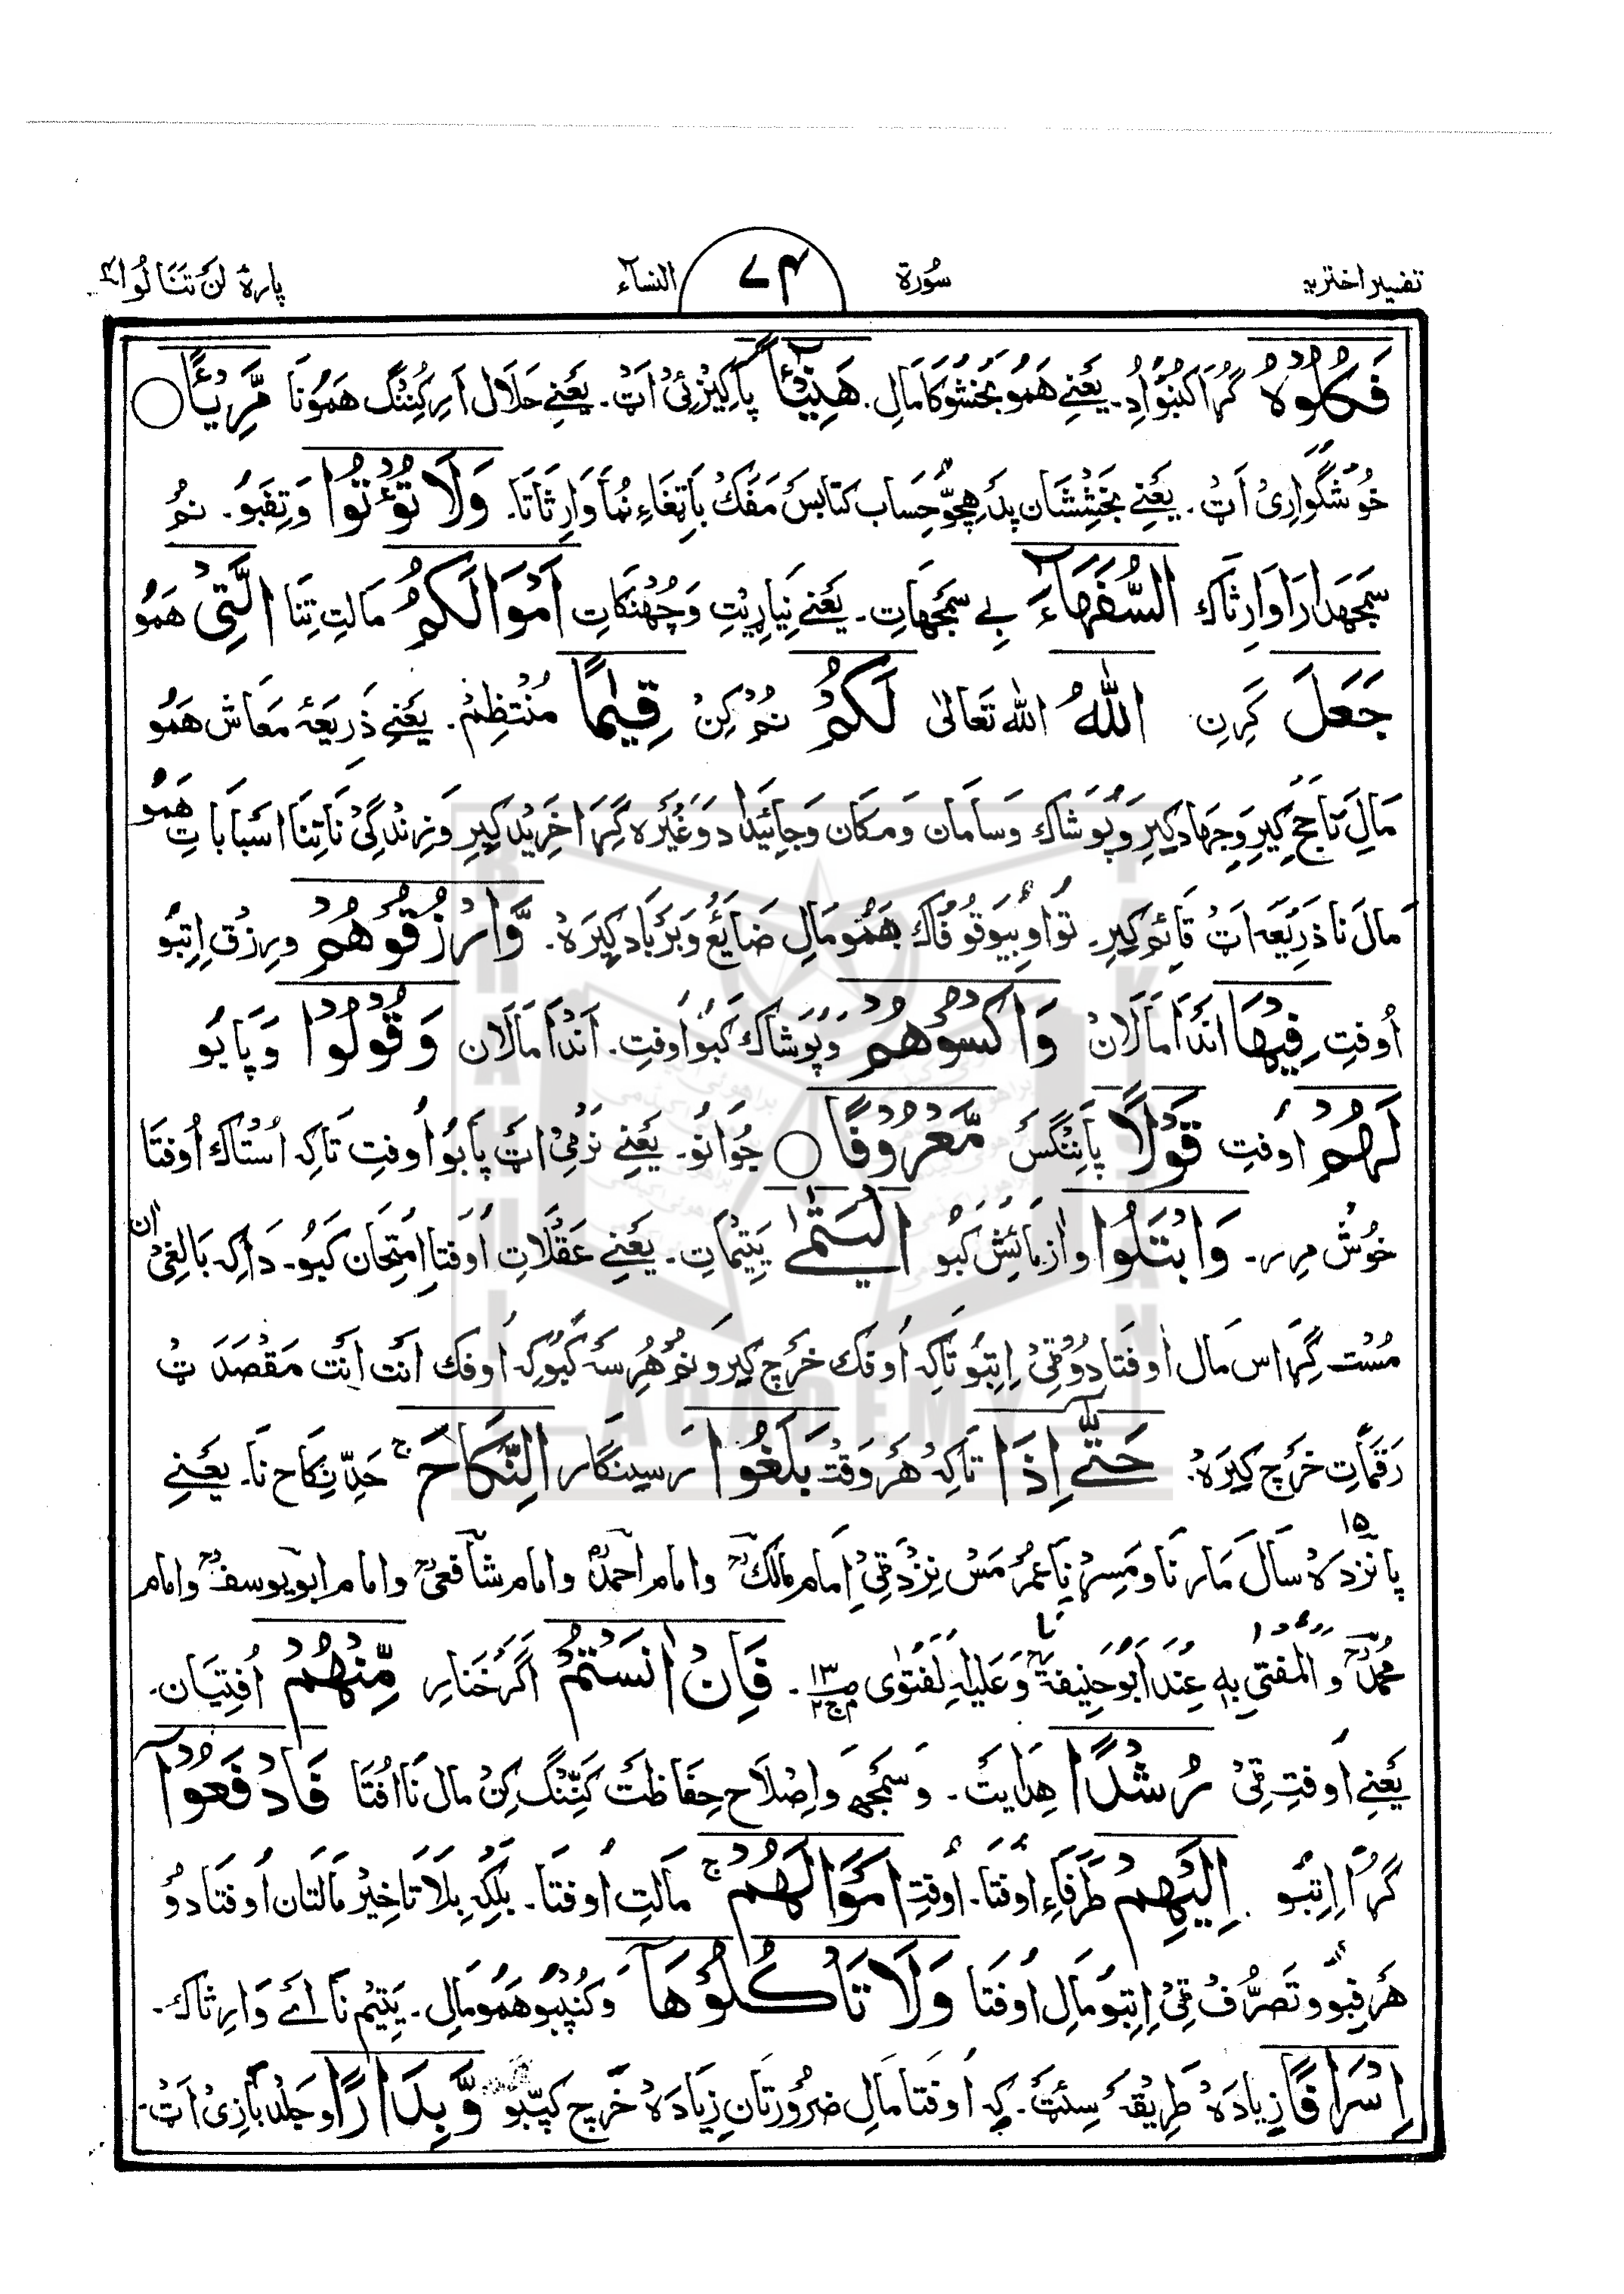 تفسیر اختریہ
سُورة
۷۴
النسآء
پارۀ لَنْ تَنَالُوا ۴
فَكُلُوْهُ گُڑا کُنْبُو اُدِ۔ یَعْنِے هَمُو بَخْشُوکَا مَالِ۔ هَنِيْٓئًا پَاکِیْزَئِیْ اَٹ۔ یَعْنِے حَلَال اَرِ کُنِنْگ هَمُونَا مَّرِيْٓئًا ○
خُوشگوَارِیْ اَٹ۔ یَعْنِے بَخْشِشَان پَد هِچّو حِسَاب کِتَابَس مَفَک بَاتِغَاءِ نُمَا وَارِثَاتَا۔ وَلَا تُؤْتُوا وَ تِفَبُو۔ نُم
سَمجھدَارَا وَارِثَاک السُّفَهَآءَ بے سَمجَهَاتِ۔ یَعْنِے نِیَارِیْتِ وَ چُهْنَکَاتِ اَمْوَالَكُمُ مَالَتِ تِنَا الَّتِیْ هَمُو
جَعَلَ کَرِنِ اللّٰهُ اللّٰه تَعَالیٰ لَكُمْ نُمْ کِنْ قِيٰمًا مُنْتَظِم۔ یَعْنِے ذَرِیعَۀ مَعَاش هَمُو
مَالِ تَا حَج کیرِ وَ جِهَاد کیرِ وَ پُوشَاک وَ سَامَان وَ مَکَان وَ جَائِیدَاد وَغَیْرَه گَڑَا خَرِیْد کیرِ وَ زِنْدگِیْ نَا تِنَا اَسْبَابَاتِ هَمُو
مَالَ نَا ذَرِیْعَہ اَٹ قَائِم کیرِ۔ تو اُو بِیوَقُوفَاک هَمُو مَالِ ضَایَع وَ بَرْبَاد کیرَہ۔ وَّارْزُقُوْهُمْ و رِزق اِتِبُو
اُوفتِ فِيْهَا اَنْدَا مَالَان وَاكْسُوْهُمْ وَ پُوشَاک کَبُو اُوفتِ۔ اَنْدَا مَالَان وَقُوْلُوْا وَ پَابُو
لَهُمْ اُوفتِ قَوْلًا پَانِنْگَس مَّعْرُوْفًا ○ جُوَانُو۔ یَعْنِے نَرْمِیْ اَٹ پَابُو اُوفتِ تَاکہ اُسْتَاک اُوفتَا
خُوش مرر۔ وَابْتَلُوا و اَزمَائِش کبو الْيَتٰمٰى یَتِیْمَاتِ۔ یَعْنِے عَقْلَاتِ اُوفتَا اِمْتِحَان کبو۔ دَاکہ بَالِغِیْ ان
مُسْت گَڑَاس مَال اُوفتَا دُوْٹِیْ اِتِبُو تَاکہ اُوفک خَرْچ کیر وَ نُم هُرسہ کَبُو کہ اُوفک اَنْت اَنْت مَقْصَد ٹ
رَقمَاتِ خَرْچ کیرَہ۔ حَتّٰٓى اِذَا تَاکہ هَر وَقت بَلَغُوا رسینگار النِّكَاحَ ۚ حَدِّ نِکَاح نَا۔ یَعْنِے
پَانزدَہ ۱۵ سَال مَارنَا و مَسِڑنَا عُمر مَس نِزْد ٹِیْ اِمَام مَالک و امام احمد و امام شافعی و امام ابو یوسف و امام
محمد و المفتیٰ بہٖ عِنْدَ اَبُو حَنِیفَة وَ عَلَیْہِ لْفَتْوٰی ۔ فَاِنْ اٰنَسْتُمْ اَگَر خَنَارِ مِّنْهُمْ اُفتِیَان۔
یَعْنِے اُوفتِ ٹِیْ رُشْدًا هِدَایَت۔ وَ سَمجھ وَ اِصْلَاح حِفَاظَت کَنِنْگ کِنْ مَال نَا اُفتَا فَادْفَعُوْٓا
گُڑَا اِتِبُو اِلَيْهِمْ طَرَفَاءِ اُوفتَا۔ اُوفتِ اَمْوَالَهُمْ ۚ مَالَتِ اُوفتَا۔ بَلکِہ بِلَا تَاخِیْر مَالتَان اُوفتَا دُو
هَر فِبُو و تَصَرُّف ٹِیْ اِتِبُو مَالِ اُوفتَا وَلَا تَاْكُلُوْهَآ وَ کُنپبُو هَمُو مَالِ۔ یَتِیْم نَا اَے وَارِثَاک۔
اِسْرَافًا زِیَادَہ طَرِیْقَہ سِئَٹ۔ کِہ اُوفتَا مَالِ ضرُورَتَان زِیَادَہ خَرچ کپّبُو وَّبِدَارًا و جَلْد بَازِیْ اَٹ۔